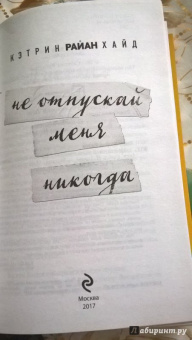 КЭТРИН РАЙАН ХАЙД
не отпускай
меня
никогда
Москва
2017
© Лабиринт.ру